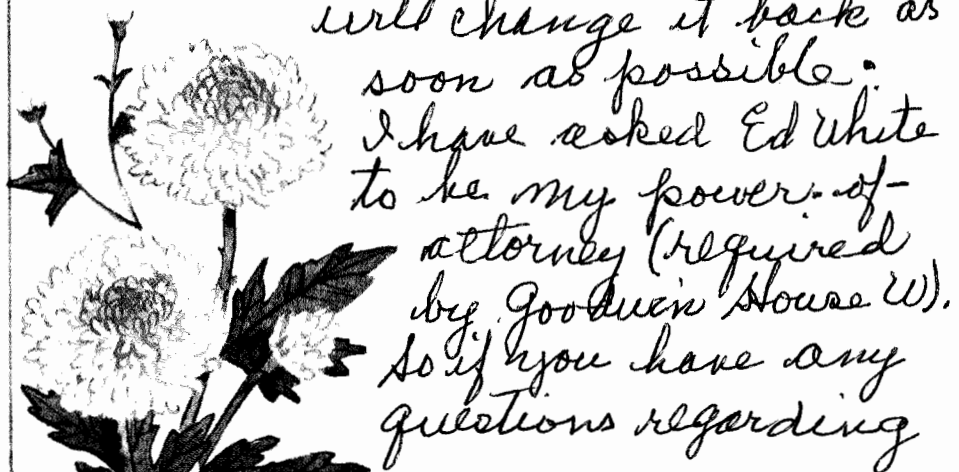 will change it back as
soon as possible.
I have asked Ed White
to be my power-of-
attorney (required
by Goodwin House W).
So if you have any
questions regarding